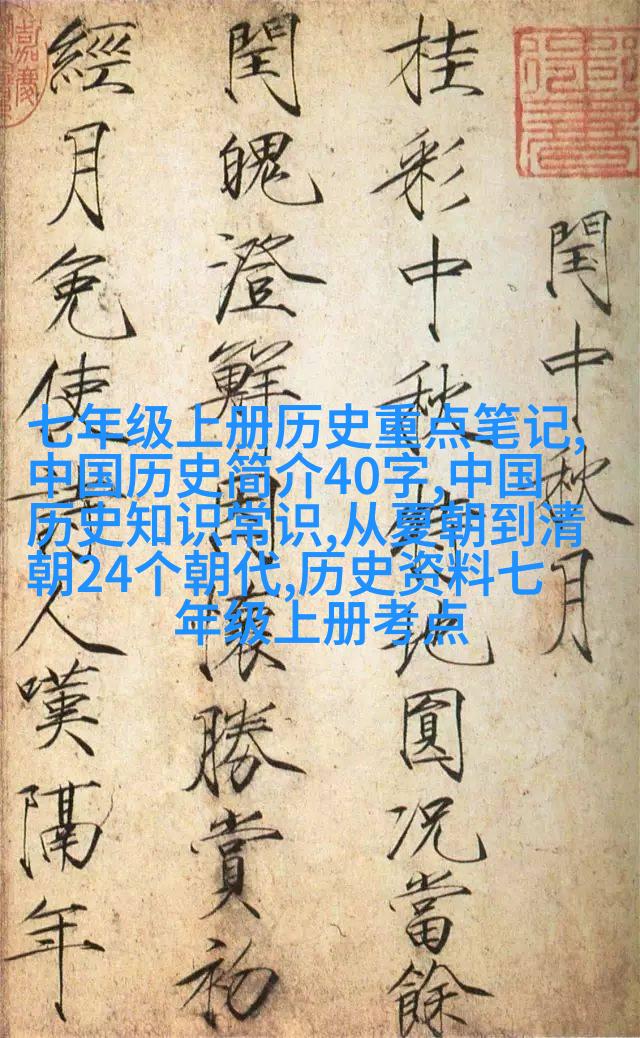 閏中秋月
桂彩中秋特地圓况當餘
閏魄澄鮮因懷勝賞初
經月免使詩人嘆隔年
七年级上册历史重点笔记,
中国历史简介40字,中国
历史知识常识,从夏朝到清
朝24个朝代,历史资料七
年级上册考点